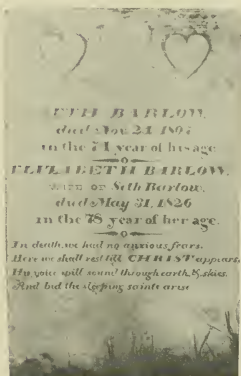 ETH BARLOW,
died Nov. 24 1807
in the 74 year of his age
ELIZABETH BARLOW,
WIFE OF Seth Barlow.
died May 31. 1826
in the 78 year of her age.
In death, we had no anxious fears.
Here we shall rest till CHRIST appears,
His voice will sound through earth & skies
And bid the sleeping saints arise